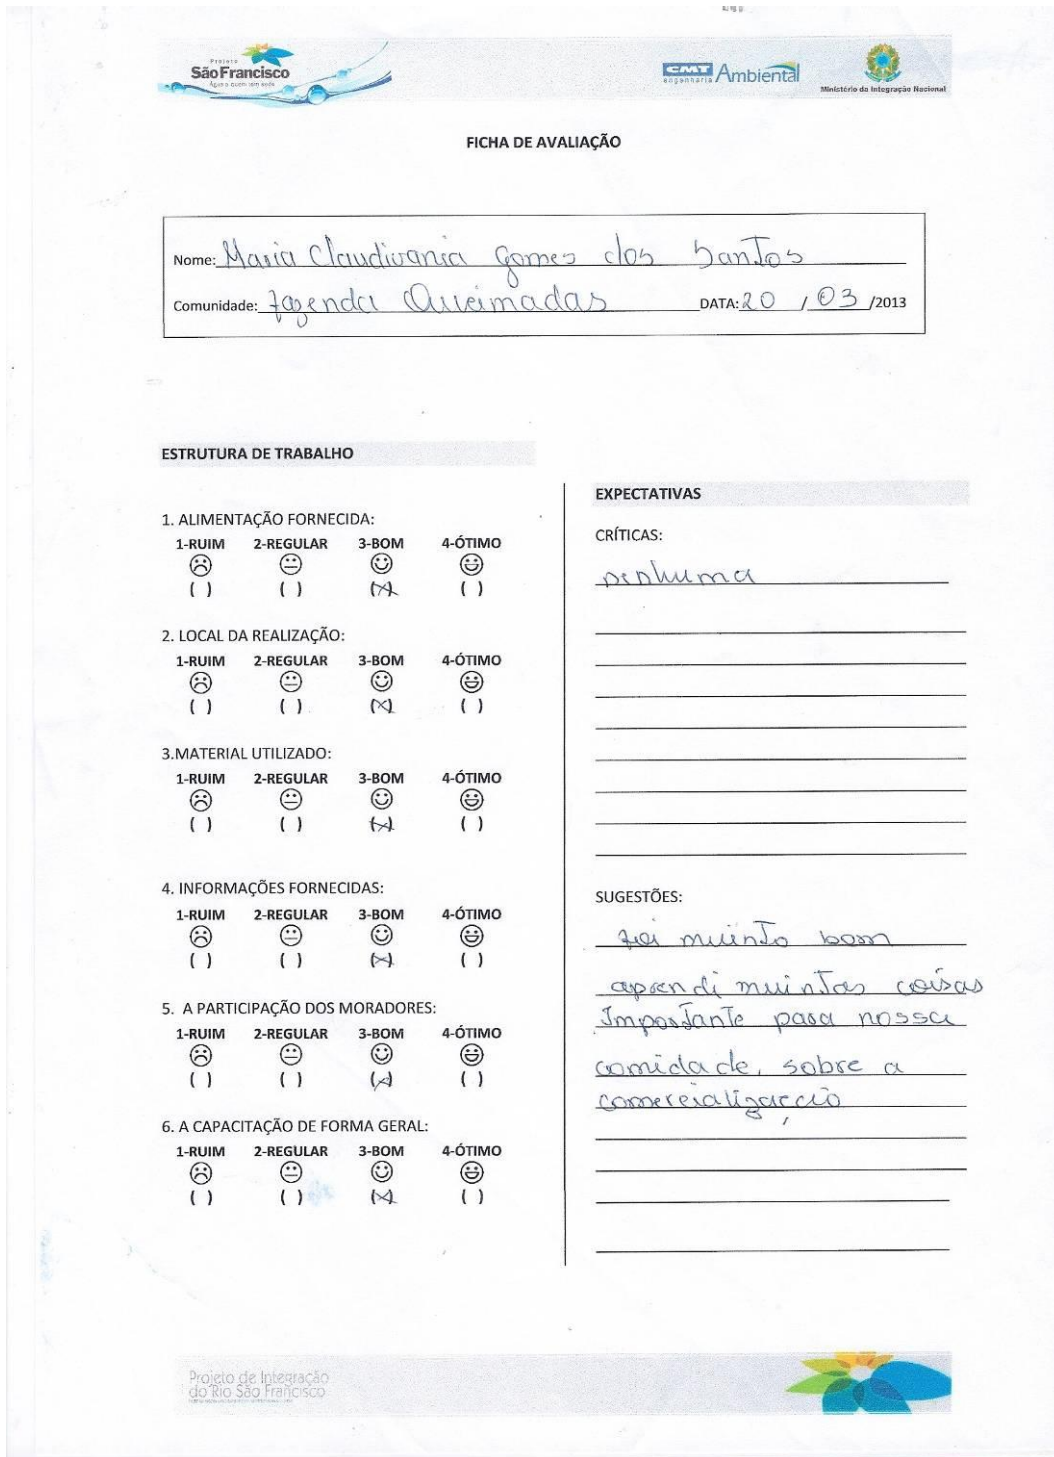 Projeto
São Francisco
Água a quem tem sede
CMT
engenharia
Ambiental
Ministério da Integração Nacional
FICHA DE AVALIAÇÃO
Nome: Maria Claudivania Gomes dos Santos
Comunidade: fazenda Queimadas DATA: 20 / 03 /2013
ESTRUTURA DE TRABALHO
1. ALIMENTAÇÃO FORNECIDA:
1-RUIM 2-REGULAR 3-BOM 4-ÓTIMO
( ) ( ) (X) ( )
2. LOCAL DA REALIZAÇÃO:
1-RUIM 2-REGULAR 3-BOM 4-ÓTIMO
( ) ( ) (X) ( )
3.MATERIAL UTILIZADO:
1-RUIM 2-REGULAR 3-BOM 4-ÓTIMO
( ) ( ) (X) ( )
4. INFORMAÇÕES FORNECIDAS:
1-RUIM 2-REGULAR 3-BOM 4-ÓTIMO
( ) ( ) (X) ( )
5. A PARTICIPAÇÃO DOS MORADORES:
1-RUIM 2-REGULAR 3-BOM 4-ÓTIMO
( ) ( ) (X) ( )
6. A CAPACITAÇÃO DE FORMA GERAL:
1-RUIM 2-REGULAR 3-BOM 4-ÓTIMO
( ) ( ) (X) ( )
EXPECTATIVAS
CRÍTICAS:
nenhuma
SUGESTÕES:
foi muinto bom
aprendi muintas coisas
Importante para nossa
comidade, sobre a
comercialização
Projeto de Integração
do Rio São Francisco